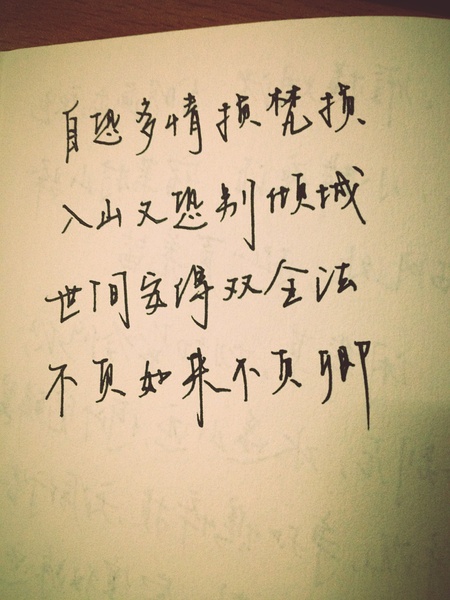 自恐多情损梵损
入山又恐别倾城
世间安得双全法
不负如来不负卿